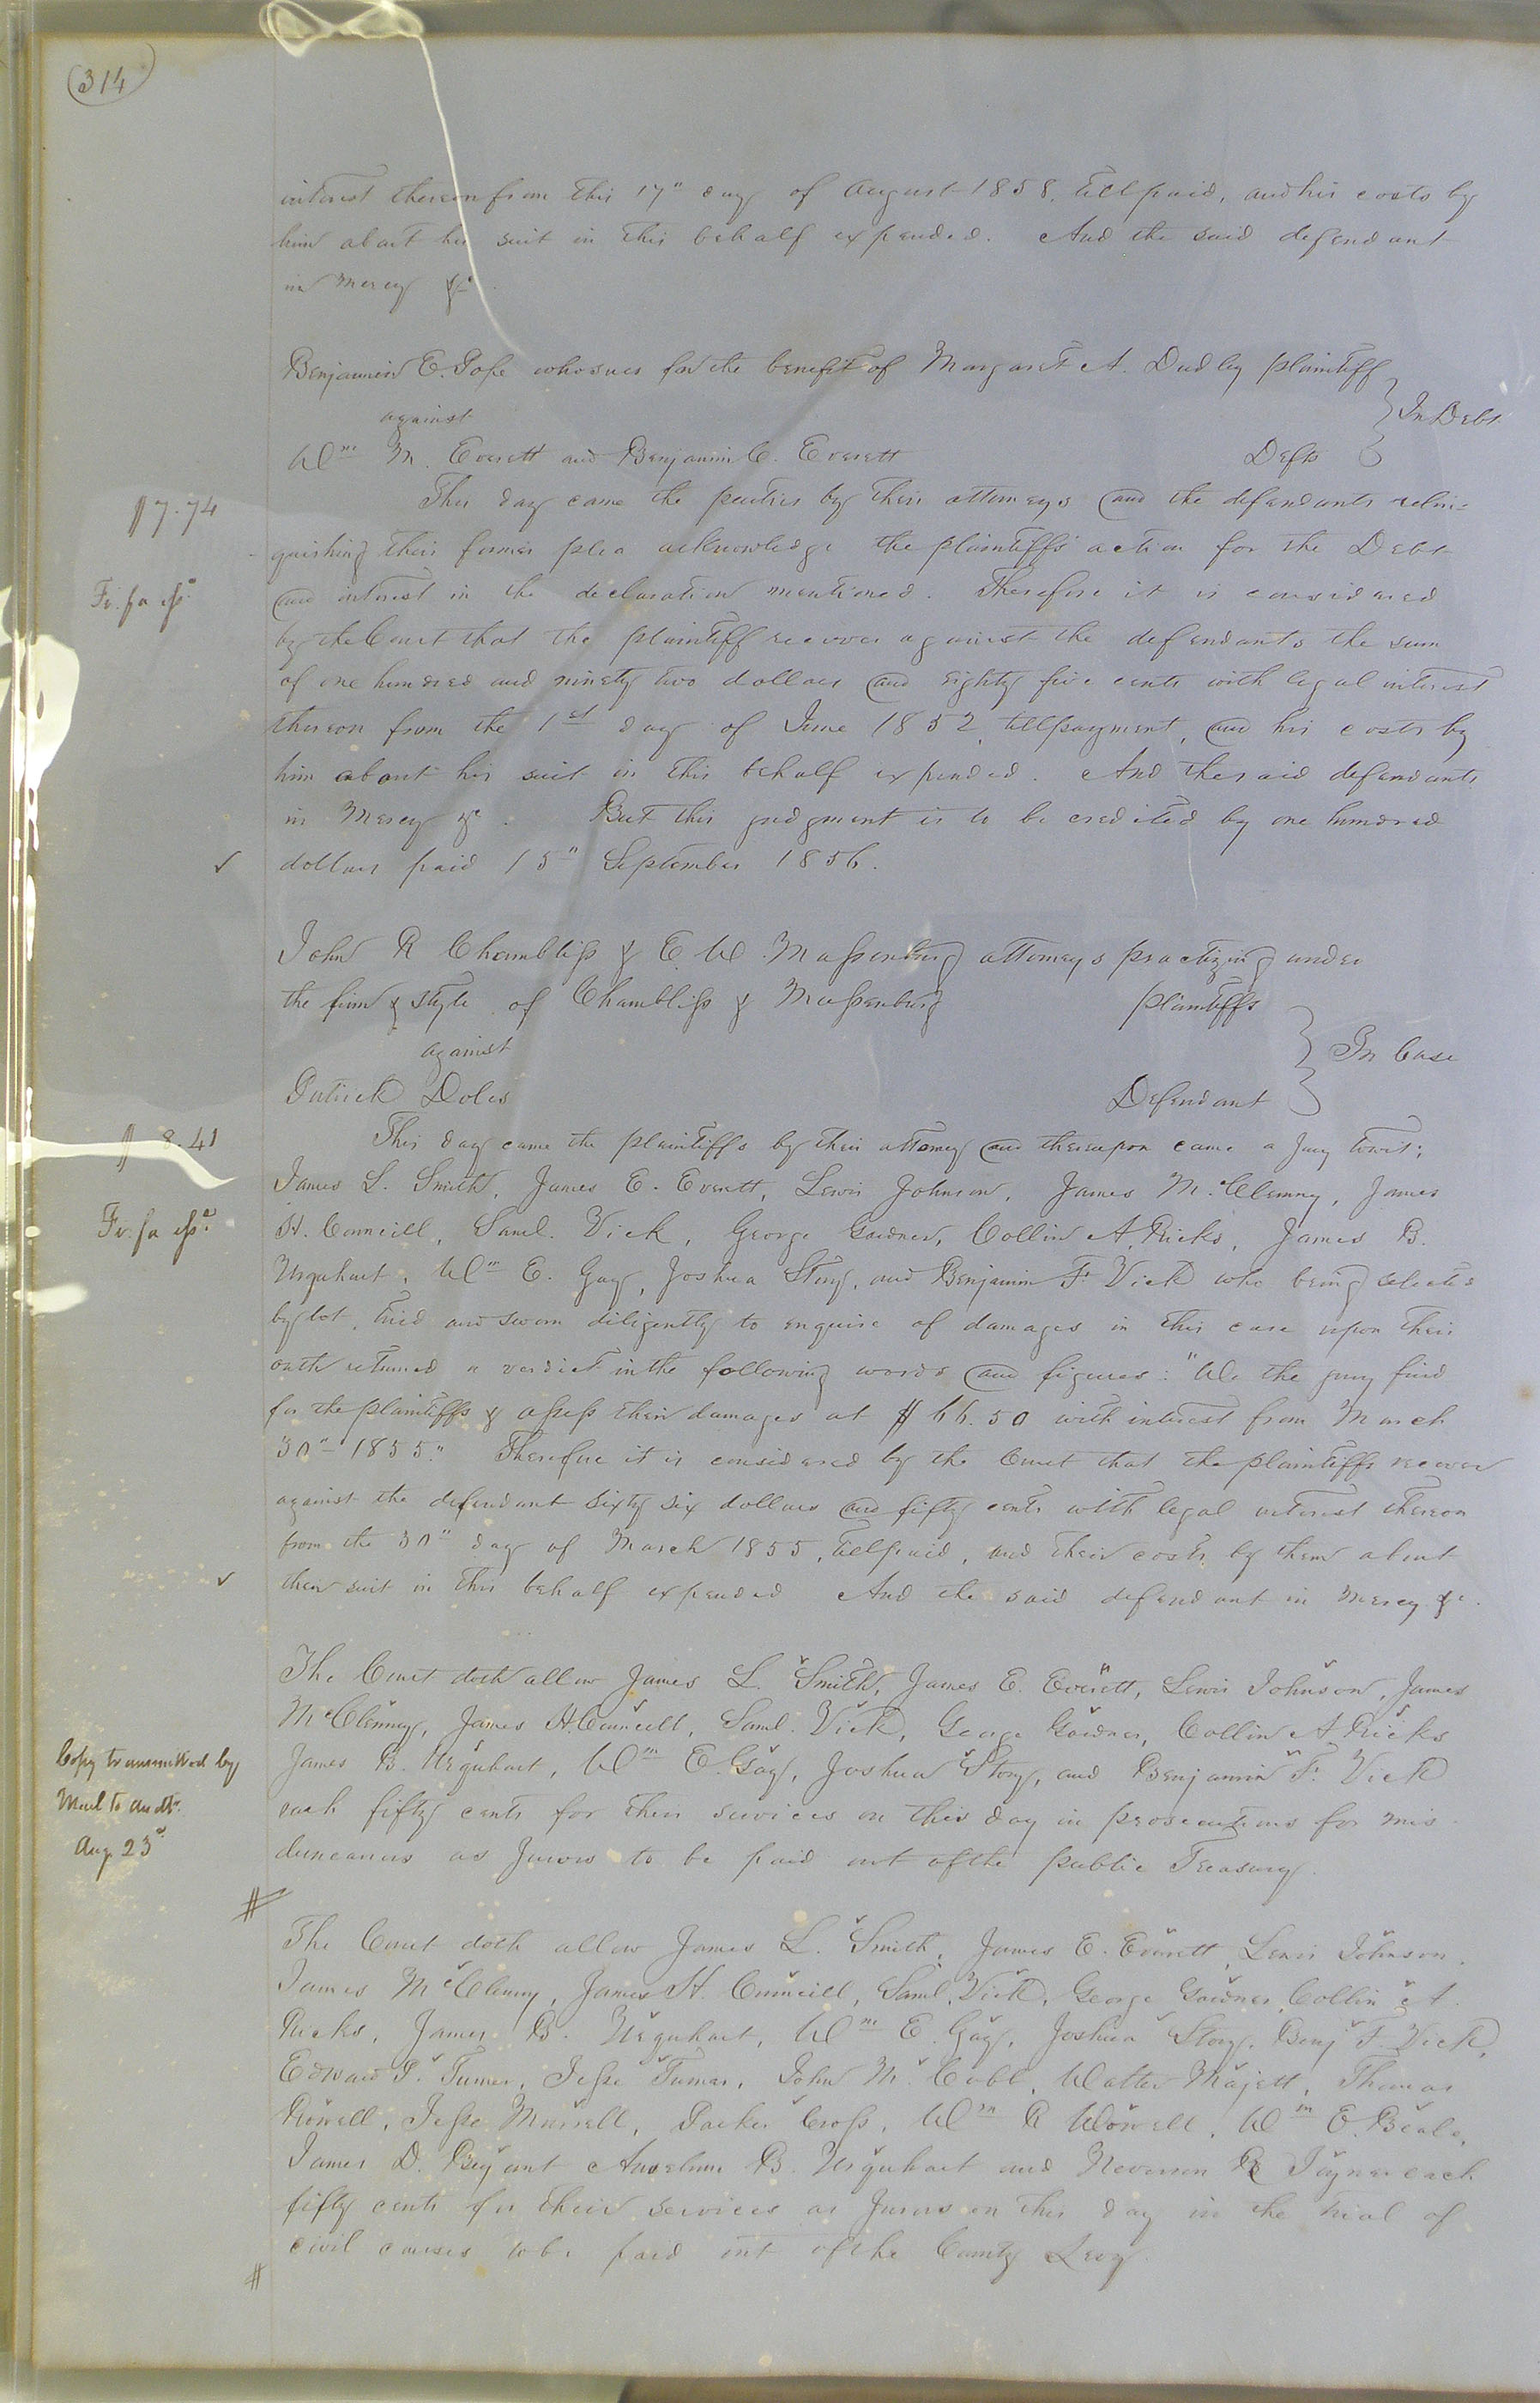 314
interest thereon from this 17" day of August 1858, till paid, and his costs by
him about his suit in this behalf expended. And the said defendant
in mercy &c.
Benjamin E. Pope who sues for the benefit of Margaret A. Dudley plaintiff
against
In Debt
Wm M. Everett and Benjamin C. Everett Defts
This day came the parties by their attorneys and the defendants relin=
$7.74
quishing their former plea acknowledge the plaintiffs' action for the Debt
and interest in the declaration mentioned. Therefore it is considered
Fi. fa
by the Court that the plaintiff recover against the defendants the sum
of one hundred and ninety two dollars and eighty five cents with legal interest
thereon from the 1st day of June 1852, till payment, and his costs by
him about his suit in this behalf expended. And the said defendants
in Mercy &c. But this judgment is to be credited by one hundred
✓ dollars paid 15" September 1856.
John R Chambliss & E. W. Massenburg attorneys practizing under
the firm & style of Chambliss & Massenburg plaintiffs
against
In Case
Patrick Doles Defendant
$8.41
This day came the plaintiffs by their attorney and thereupon came a Jury towit;
James L. Smith, James E. Everett, Lewis Johnson, James McClenny, James
Fi. fa
H. Councill, Saml. Vick, George Gardner, Collin A. Ricks, James B.
Urquhart, Wm E. Gay, Joshua Story, and Benjamin F. Vick who being selected
by lot, tried and sworn diligently to enquire of damages in this case upon their
oath returned a verdict in the following words and figures: "We the jury find
for the plaintiffs & assess their damages at $66.50 with interest from March
30" 1855." Therefore it is considered by the Court that the plaintiffs recover
against the defendant sixty six dollars and fifty cents with legal interest thereon
from the 30" day of March 1855, till paid, and their costs by them about
✓ their suit in this behalf expended And the said defendant in mercy &c.
The Court doth allow James L. Smith, James E. Everett, Lewis Johnson, James
McClenny, James H. Councill, Saml. Vick, George Gardner, Collin A. Ricks
Copy transmitted by
James B. Urquhart, Wm E. Gay, Joshua Story, and Benjamin F. Vick
Mail to Audtr.
each fifty cents for their services on this day in prosecutions for mis-
Aug 23d
demeanors as Jurors to be paid out of the public Treasury.
#
The Court doth allow James L. Smith, James E. Everett, Lewis Johnson,
James McClenny, James H. Councill, Saml. Vick, George Gardner, Collin A.
Ricks, James B. Urquhart, Wm E. Gay, Joshua Story, Benj F. Vick,
Edward P. Turner, Jesse Turner, John M. Cobb, Walter Majett, Thomas
Rowell, Jesse Murrell, Parker Cross, Wm R Worrell, Wm E. Beale,
James D. Bryant Anselm B. Urquhart and Neverson R Joyner each
fifty cents for their services as Jurors on this day in the trial of
civil causes to be paid out of the County Levy.
#